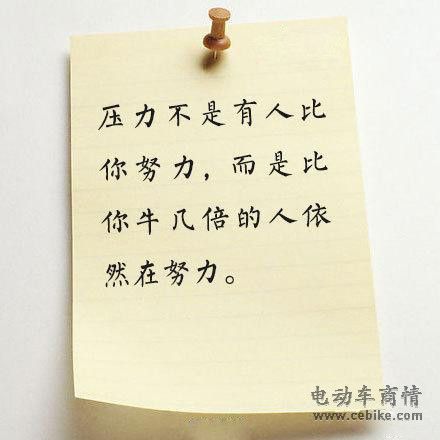 压力不是有人比
你努力，而是比
你牛几倍的人依
然在努力。
电动车商情
www.cebike.com